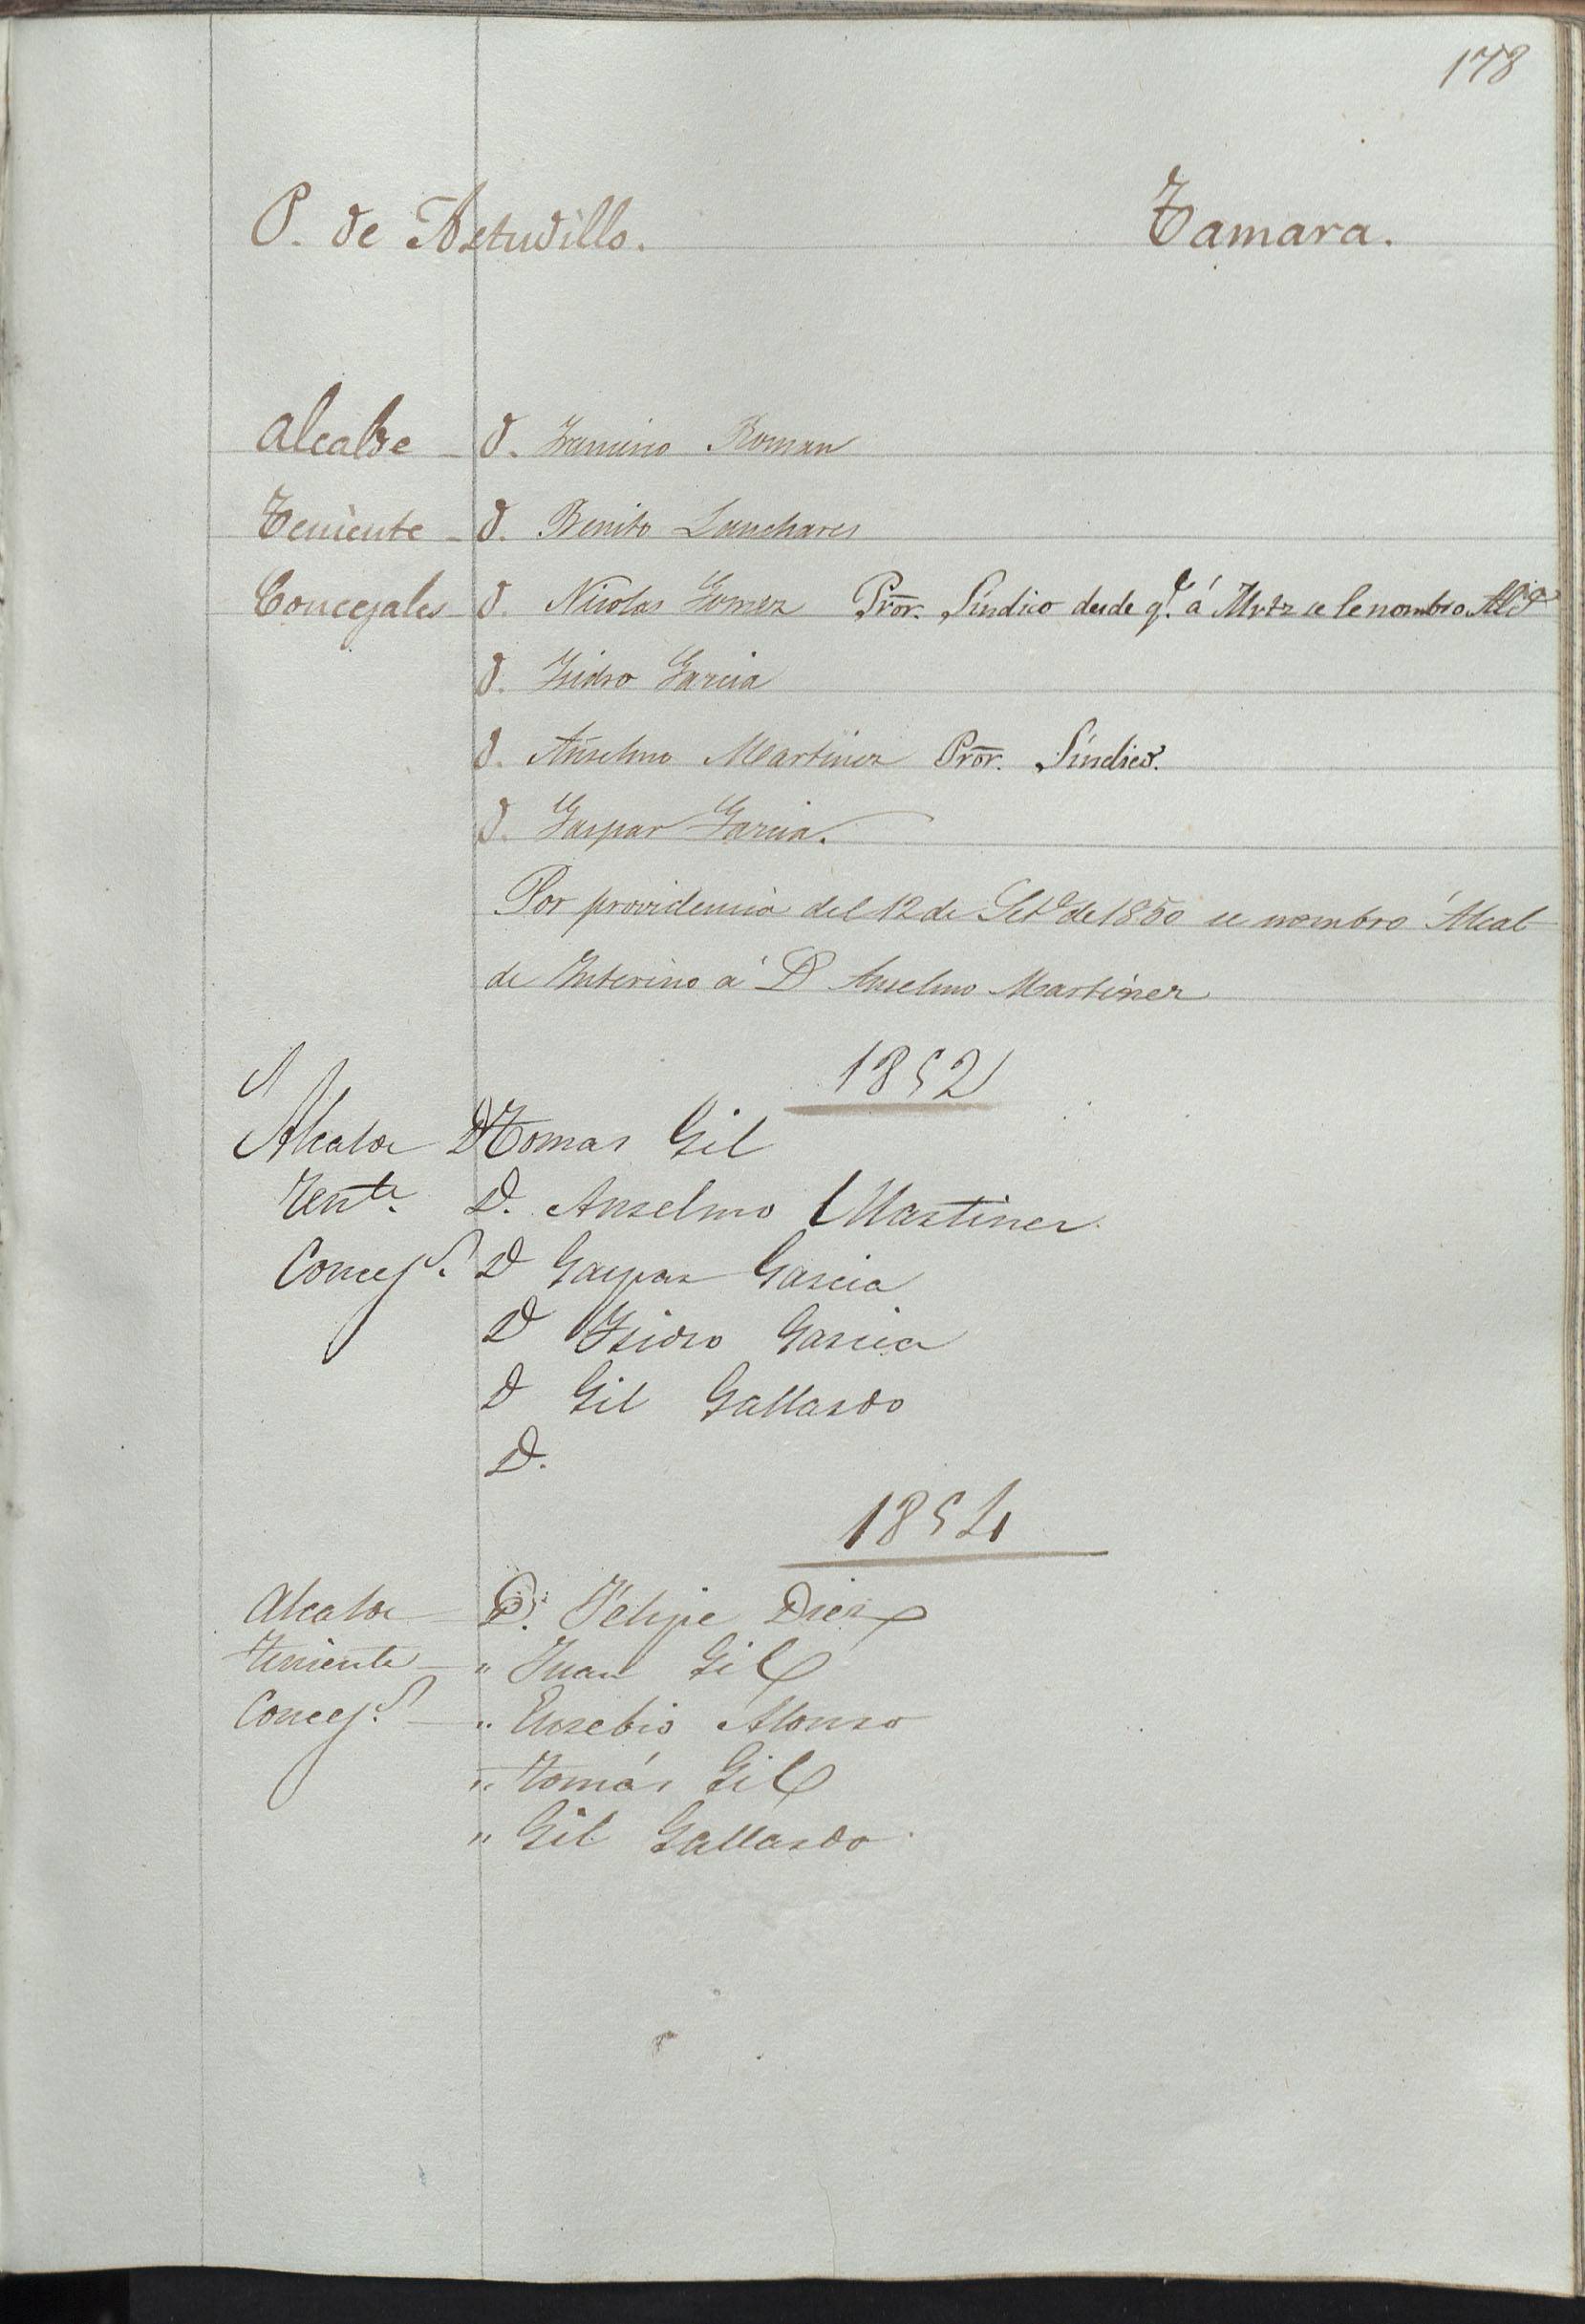 178
P. de Astudillo. Tamara.
Alcalde - D. Ramiro Roman
Teniente - D. Benito Lanchares
Concejales D. Nicolas Gomez Pror. Síndico desde q.e á Mrtz se le nombro Alc.e
D. Isidro Garcia
D. Anselmo Martinez Pror. Síndico.
D. Gaspar Garcia.
Por providencia del 12 de Set.e de 1850 se nombro Alcal
de Interino á D Anselmo Martinez
1852
Alcalde D Tomas Gil
Tente. D. Anselmo Martinez
Concejs. D Gaspar Garcia
D Isidro Garcia
D Gil Gallardo
D.
1854
Alcalde D. Felipe Diez
Teniente - " Juan Gil
Concejs. - " Eusebio Alonso
" Tomás Gil
" Gil Gallardo